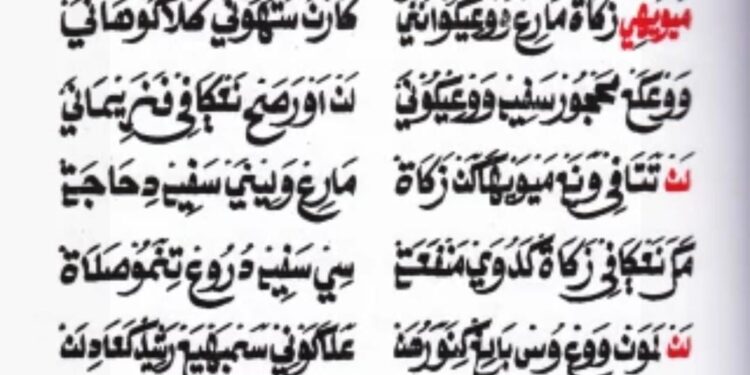 ميويهي زكاة مارغ ووغيكوانني كارن ستهوني كلاكوصاني
ووعكغ محجور سفيه ووغيكوني لن اورصح نغكافي فنريماني
لن تتافي ونغ ميويهاكن زكاة مارغ وليني سفيه دحاجة
مر نغكافي زكاة كدوي منفعة سي سفيه دروغ تغمو صلاة
لن لموت ووغ وس علاكوني سمبهيغ رشيد كعادلن